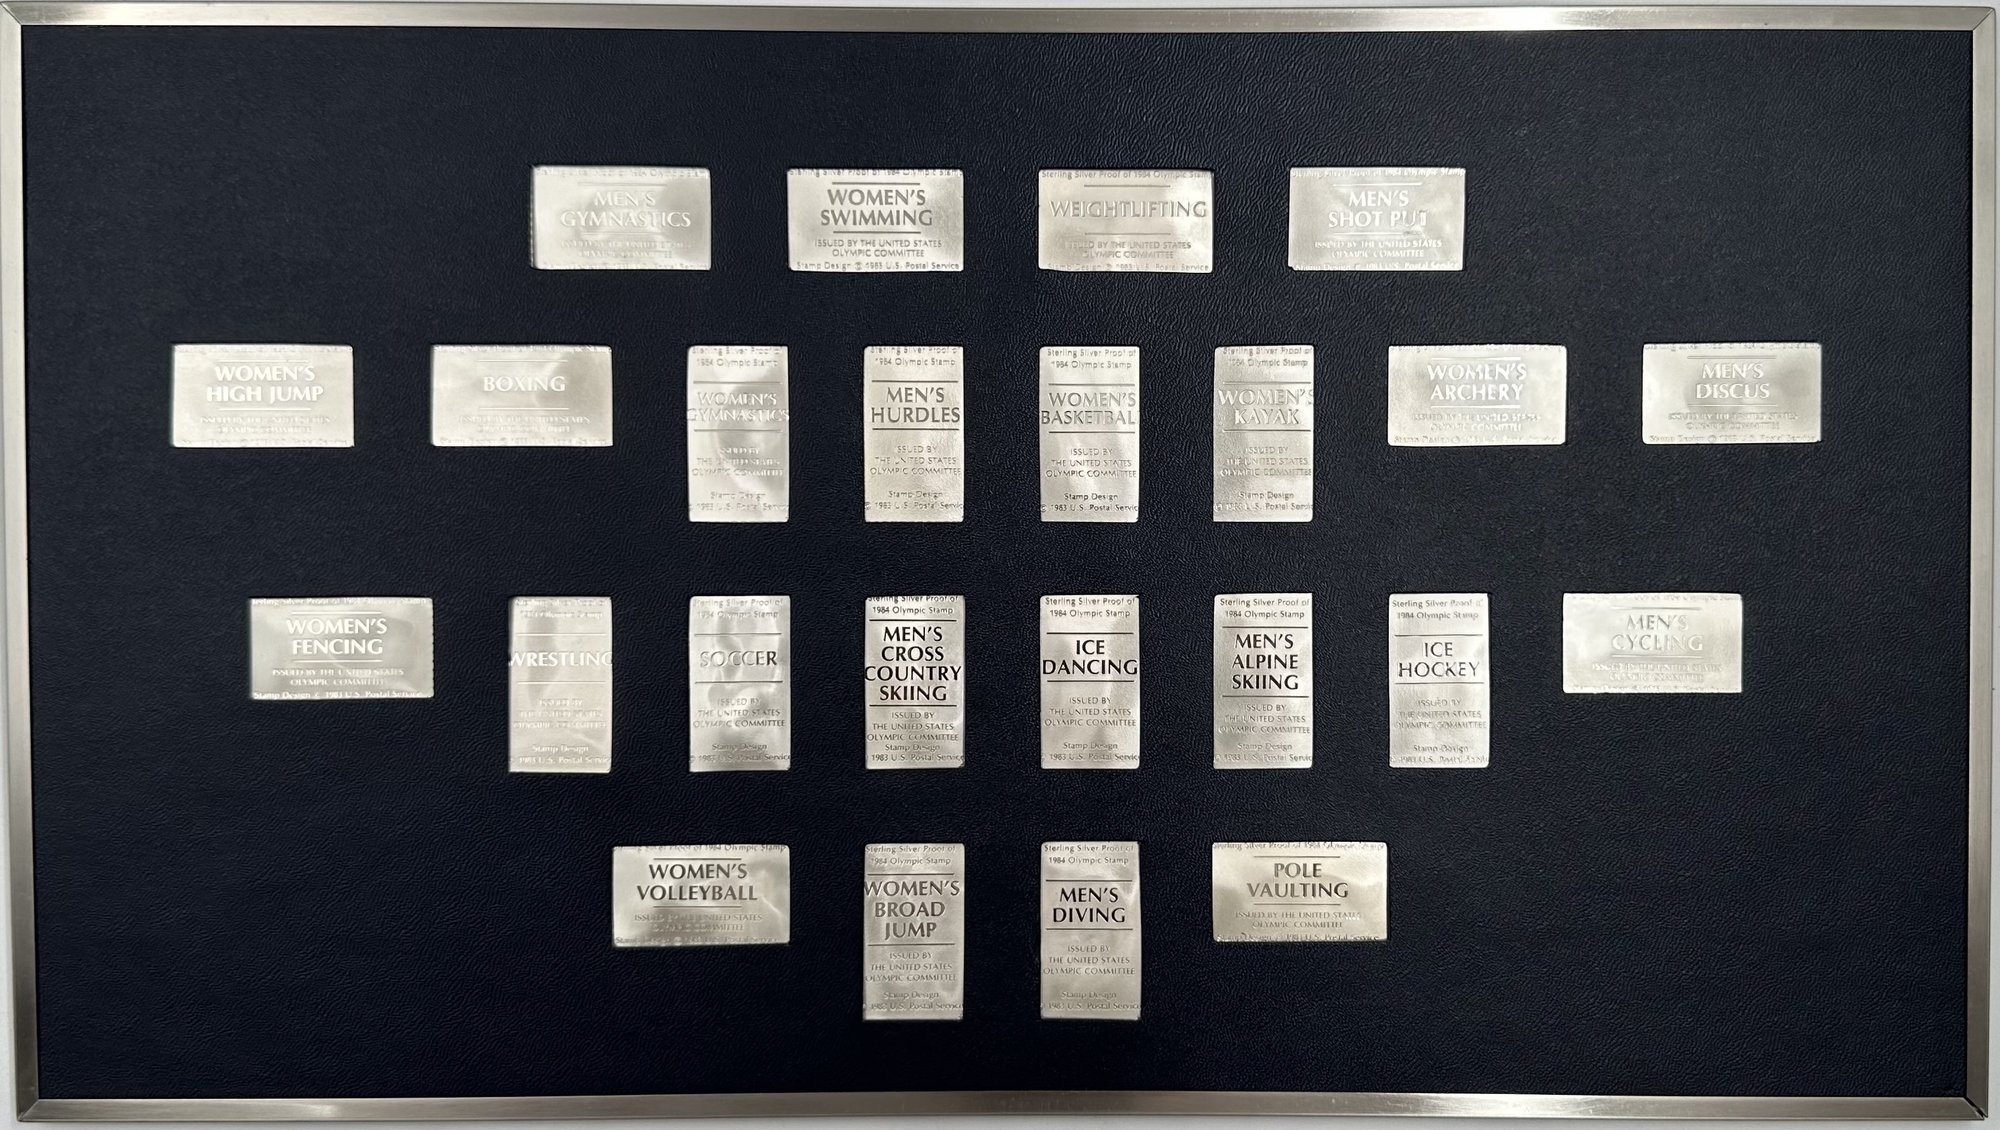 Sterling Silver Proof of 1984 Olympic Stamp
MEN'S
GYMNASTICS
ISSUED BY THE UNITED STATES
OLYMPIC COMMITTEE
Sterling Silver Proof of 1984 Olympic Stamp
WOMEN'S
SWIMMING
ISSUED BY THE UNITED STATES
OLYMPIC COMMITTEE
Stamp Design © 1983 U.S. Postal Service
Sterling Silver Proof of 1984 Olympic Stamp
WEIGHTLIFTING
ISSUED BY THE UNITED STATES
OLYMPIC COMMITTEE
Stamp Design © 1983 U.S. Postal Service
Sterling Silver Proof of 1984 Olympic Stamp
MEN'S
SHOT PUT
ISSUED BY THE UNITED STATES
OLYMPIC COMMITTEE
Stamp Design © 1983 U.S. Postal Service
WOMEN'S
HIGH JUMP
ISSUED BY THE UNITED STATES
OLYMPIC COMMITTEE
BOXING
ISSUED BY THE UNITED STATES
OLYMPIC COMMITTEE
Sterling Silver Proof of
1984 Olympic Stamp
WOMEN'S
GYMNASTICS
ISSUED BY
THE UNITED STATES
OLYMPIC COMMITTEE
Stamp Design
© 1983 U.S. Postal Service
Sterling Silver Proof of
1984 Olympic Stamp
MEN'S
HURDLES
ISSUED BY
THE UNITED STATES
OLYMPIC COMMITTEE
Stamp Design
© 1983 U.S. Postal Service
Sterling Silver Proof of
1984 Olympic Stamp
WOMEN'S
BASKETBALL
ISSUED BY
THE UNITED STATES
OLYMPIC COMMITTEE
Stamp Design
© 1983 U.S. Postal Service
Sterling Silver Proof of
1984 Olympic Stamp
WOMEN'S
KAYAK
ISSUED BY
THE UNITED STATES
OLYMPIC COMMITTEE
Stamp Design
© 1983 U.S. Postal Service
WOMEN'S
ARCHERY
ISSUED BY THE UNITED STATES
OLYMPIC COMMITTEE
Stamp Design © 1983 U.S. Postal Service
MEN'S
DISCUS
ISSUED BY THE UNITED STATES
OLYMPIC COMMITTEE
Stamp Design © 1983 U.S. Postal Service
Sterling Silver Proof of 1984 Olympic Stamp
WOMEN'S
FENCING
ISSUED BY THE UNITED STATES
OLYMPIC COMMITTEE
Stamp Design © 1983 U.S. Postal Service
1984 Olympic Stamp
WRESTLING
ISSUED BY
THE UNITED STATES
OLYMPIC COMMITTEE
Stamp Design
1983 U.S. Postal Service
Sterling Silver Proof of
1984 Olympic Stamp
SOCCER
ISSUED BY
THE UNITED STATES
OLYMPIC COMMITTEE
Stamp Design
© 1983 U.S. Postal Service
Sterling Silver Proof of
1984 Olympic Stamp
MEN'S
CROSS
COUNTRY
SKIING
ISSUED BY
THE UNITED STATES
OLYMPIC COMMITTEE
Stamp Design
1983 U.S. Postal Service
Sterling Silver Proof of
1984 Olympic Stamp
ICE
DANCING
ISSUED BY
THE UNITED STATES
OLYMPIC COMMITTEE
Stamp Design
1983 U.S. Postal Service
Sterling Silver Proof of
1984 Olympic Stamp
MEN'S
ALPINE
SKIING
ISSUED BY
THE UNITED STATES
OLYMPIC COMMITTEE
Stamp Design
© 1983 U.S. Postal Service
Sterling Silver Proof of
1984 Olympic Stamp
ICE
HOCKEY
ISSUED BY
THE UNITED STATES
OLYMPIC COMMITTEE
Stamp Design
© 1983 U.S. Postal Service
MEN'S
CYCLING
ISSUED BY THE UNITED STATES
OLYMPIC COMMITTEE
Silver Proof of 1984 Olympic Stamp
WOMEN'S
VOLLEYBALL
ISSUED BY THE UNITED STATES
OLYMPIC COMMITTEE
Stamp Design © 1983 U.S. Postal Service
Sterling Silver Proof of
1984 Olympic Stamp
WOMEN'S
BROAD
JUMP
ISSUED BY
THE UNITED STATES
OLYMPIC COMMITTEE
Stamp Design
© 1983 U.S. Postal Service
Sterling Silver Proof of
1984 Olympic Stamp
MEN'S
DIVING
ISSUED BY
THE UNITED STATES
OLYMPIC COMMITTEE
Stamp Design
© 1983 U.S. Postal Service
Sterling Silver Proof of 1984 Olympic Stamp
POLE
VAULTING
ISSUED BY THE UNITED STATES
OLYMPIC COMMITTEE
Stamp Design © 1983 U.S. Postal Service